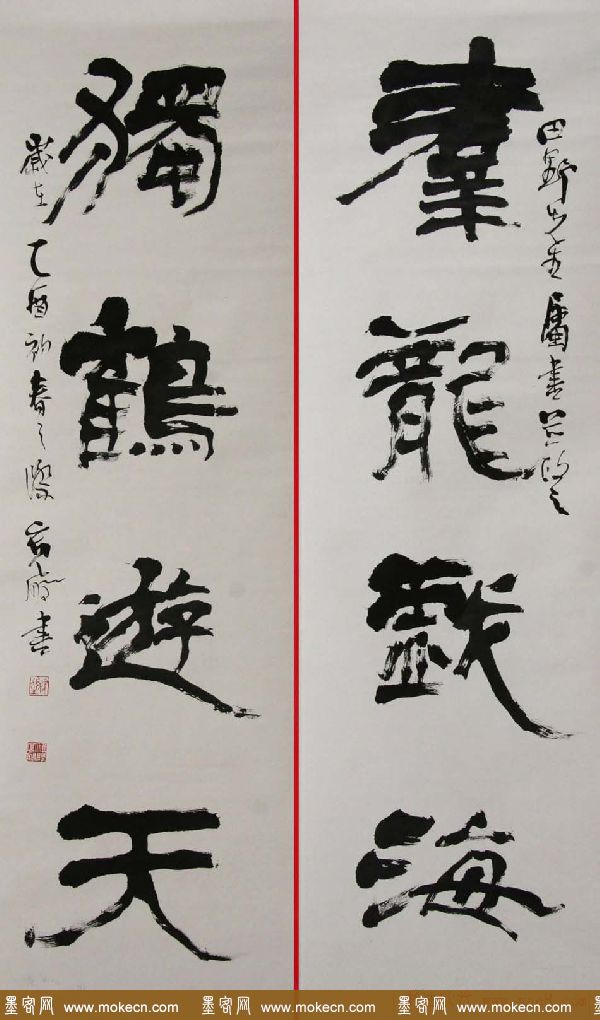 田野先生屬書政之
羣龍戲海
獨鶴遊天
歲在乙酉初春之際書
墨客网 www.mokecn.com 墨客网 www.mokecn.com 墨客网 www.mokecn.com 墨客网